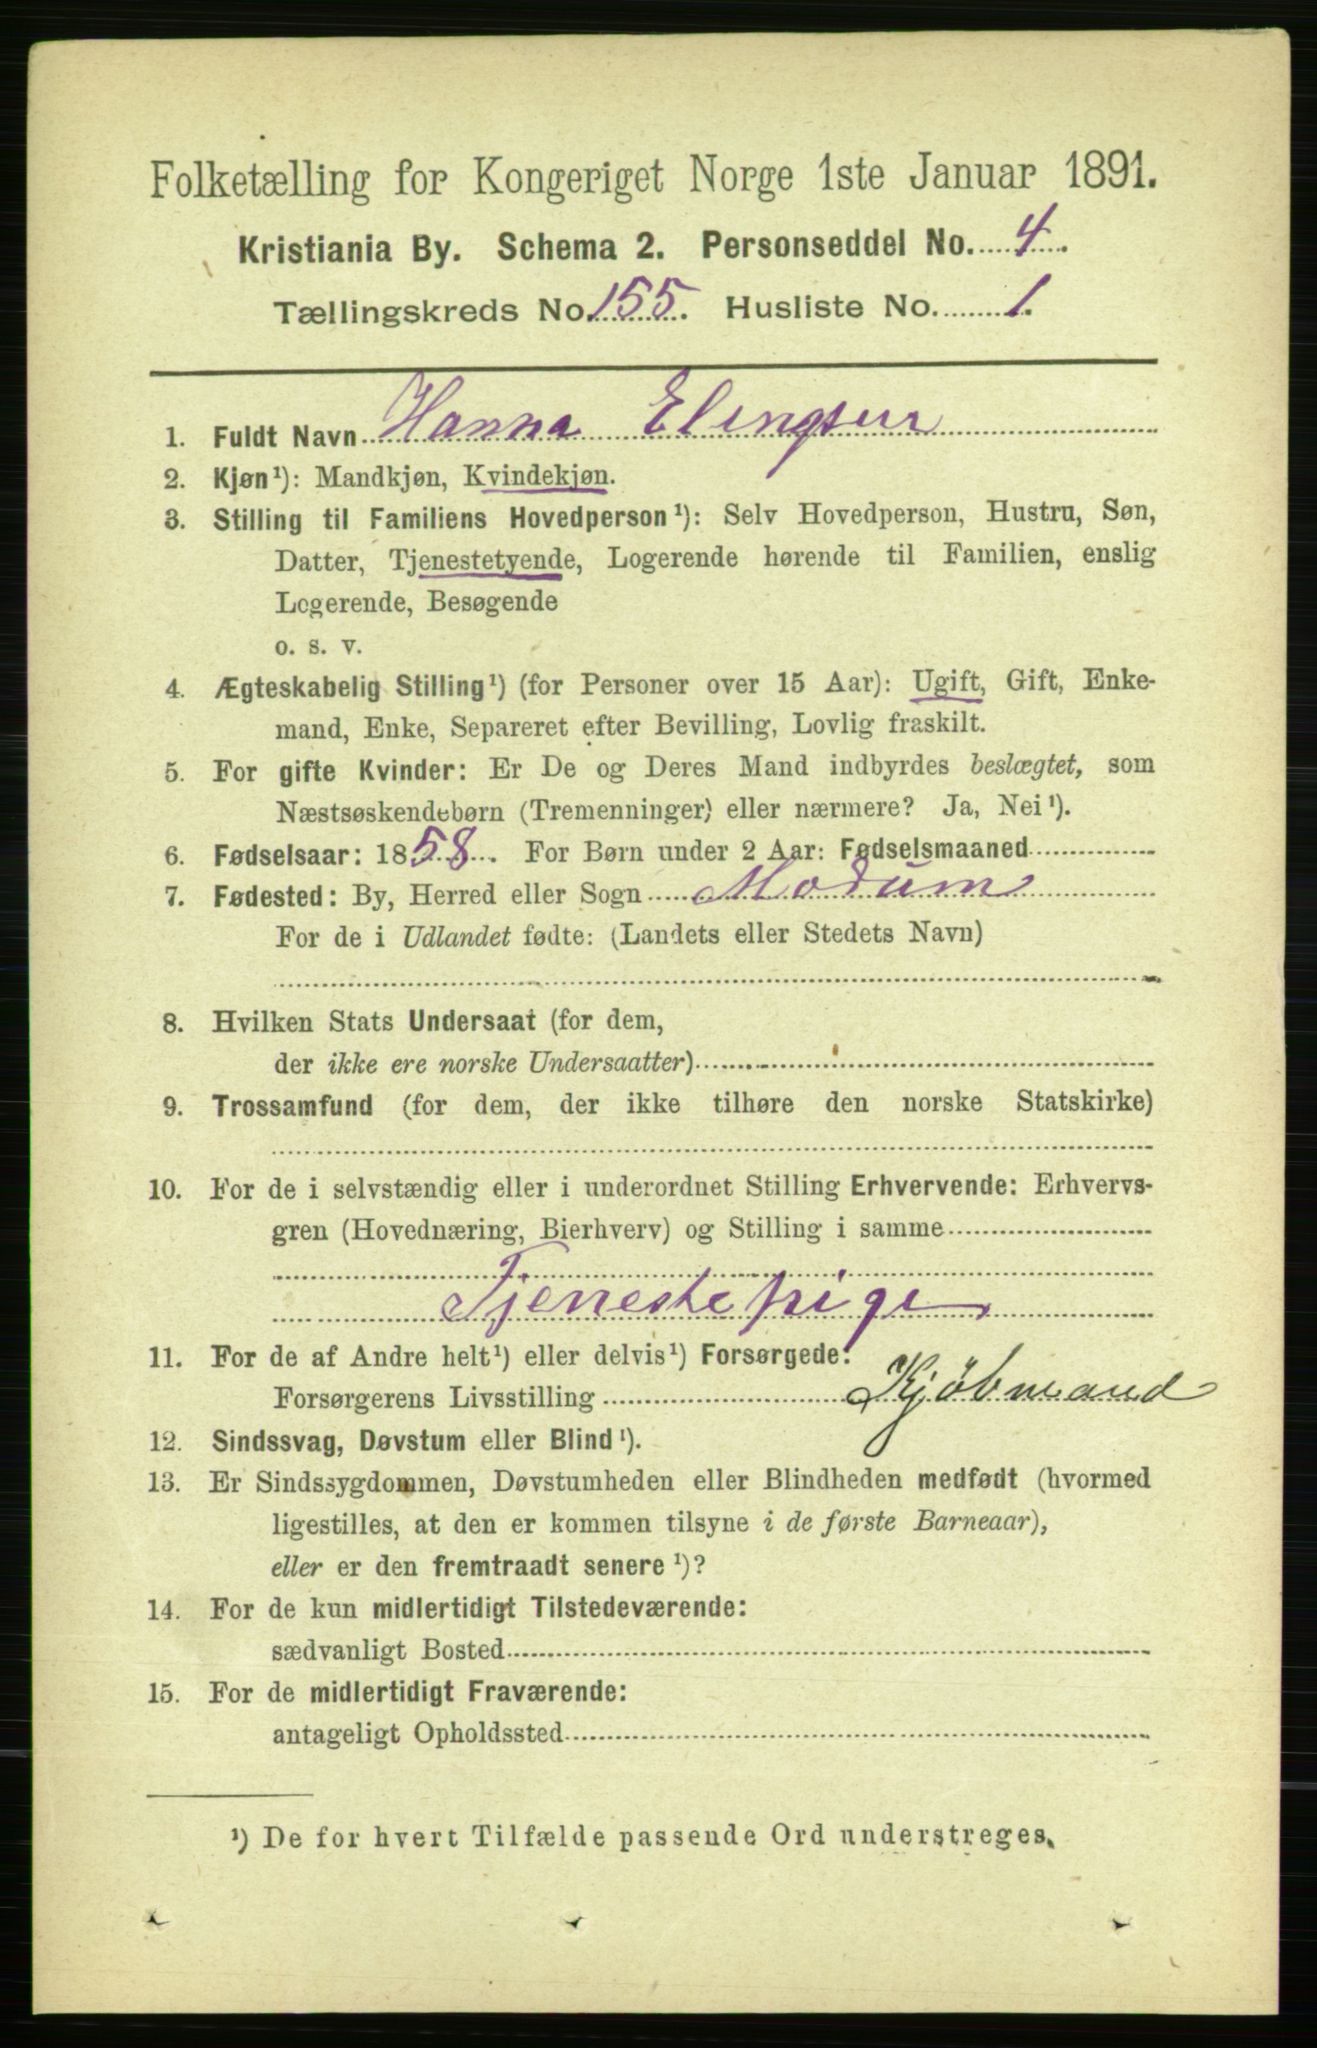 Folketælling for Kongeriget Norge 1ste Januar 1891.
Kristiania By. Schema 2. Personseddel No. 4.
Tællingskreds No. 155. Husliste No. 1.
1. Fuldt Navn Hanna Elingsen
2. Kjøn¹): Mandkjøn, Kvindekjøn.
3. Stilling til Familiens Hovedperson¹): Selv Hovedperson, Hustru, Søn,
Datter, Tjenestetyende, Logerende hørende til Familien, enslig
Logerende, Besøgende
o. s. v.
4. Ægteskabelig Stilling¹) (for Personer over 15 Aar): Ugift, Gift, Enke-
mand, Enke, Separeret efter Bevilling, Lovlig fraskilt.
5. For gifte Kvinder: Er De og Deres Mand indbyrdes beslægtet, som
Næstsøskendebørn (Tremenninger) eller nærmere? Ja, Nei¹).
6. Fødselsaar: 1858. For Børn under 2 Aar: Fødselsmaaned
7. Fødested: By, Herred eller Sogn Modum
For de i Udlandet fødte: (Landets eller Stedets Navn)
8. Hvilken Stats Undersaat (for dem,
der ikke ere norske Undersaatter)
9. Trossamfund (for dem, der ikke tilhøre den norske Statskirke)
10. For de i selvstændig eller i underordnet Stilling Erhvervende: Erhvervs-
gren (Hovednæring, Bierhverv) og Stilling i samme
Tjenestepige
11. For de af Andre helt¹) eller delvis¹) Forsørgede:
Forsørgerens Livsstilling Kjöbmand
12. Sindssvag, Døvstum eller Blind¹).
13. Er Sindssygdommen, Døvstumheden eller Blindheden medfødt (hvormed
ligestilles, at den er kommen tilsyne i de første Barneaar),
eller er den fremtraadt senere¹)?
14. For de kun midlertidigt Tilstedeværende:
sædvanligt Bosted
15. For de midlertidigt Fraværende:
antageligt Opholdssted
¹) De for hvert Tilfælde passende Ord understreges.